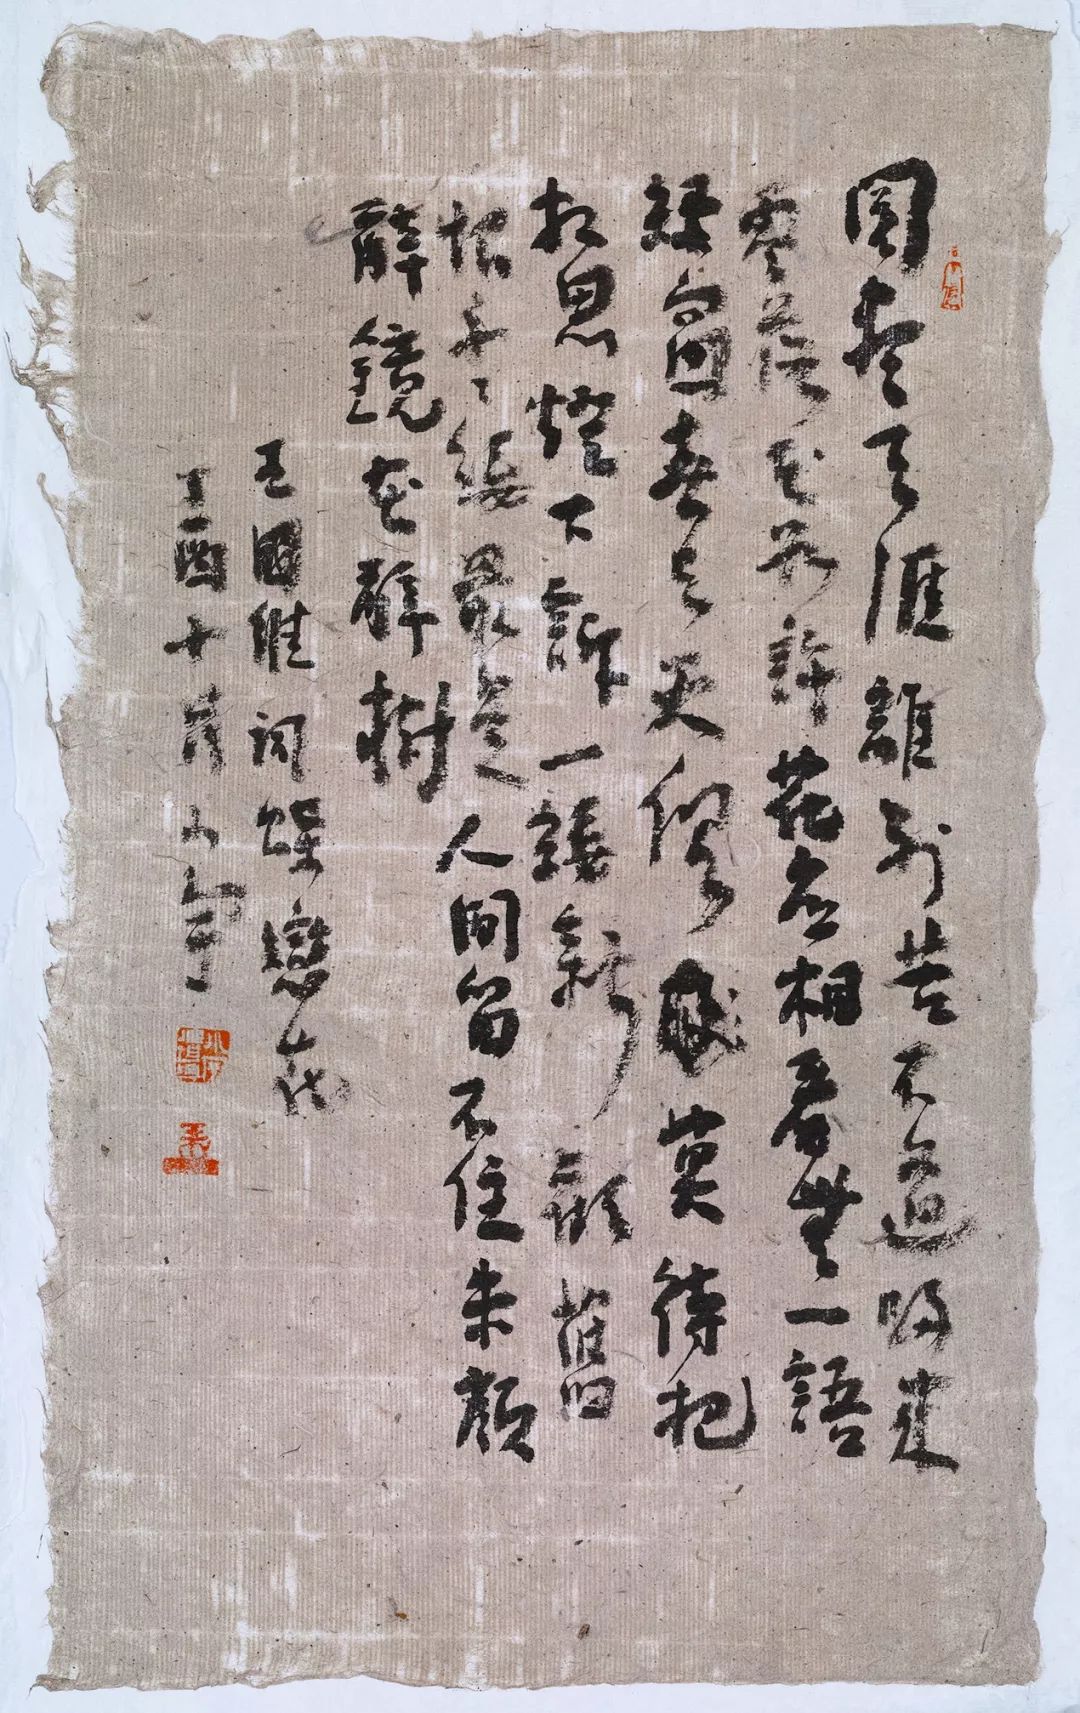 閱盡天涯離別苦不道歸來
零落花如許花底相看無一語
綠窗春與天俱莫待把
相思燈下訴一縷新歡舊
恨千〻縷最是人間留不住朱顏
辭鏡花辭樹
王國維詞蝶戀花
丁酉十月